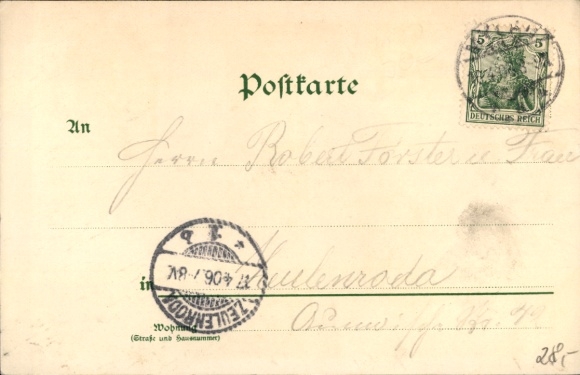 5 5
DEUTSCHES REICH
Postkarte
An
Herrn Robert Förster u Frau
Zeulenroda
in
* 1 b
17 4 06. 7-8V.
ZEULENRODA
Wohnung
(Straße und Hausnummer)
28,-